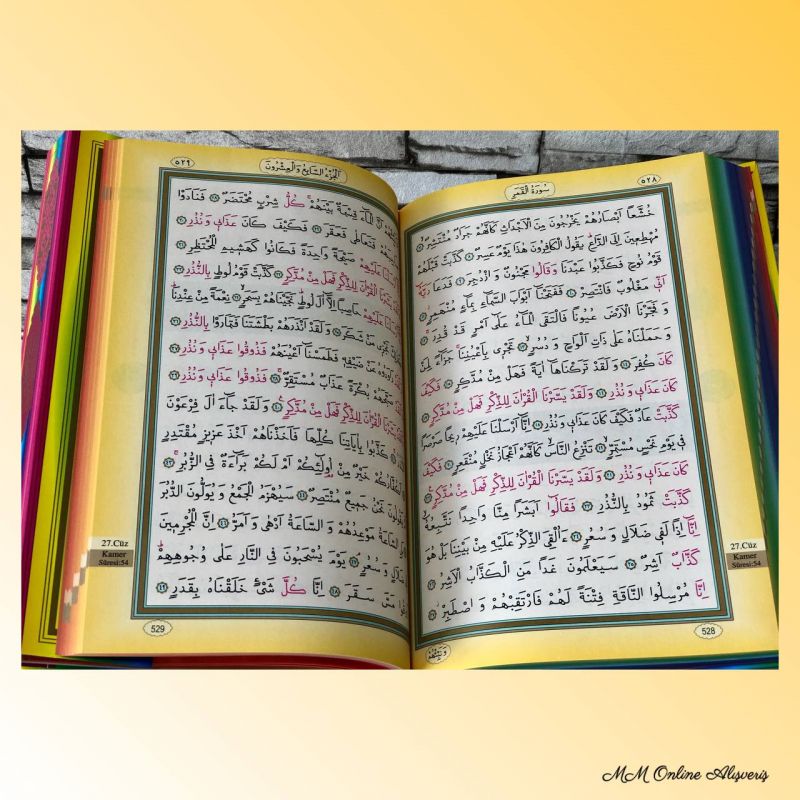 ٥٢٨
سُورَةُ الْقَمَرِ
خُشَّعًا اَبْصَارُهُمْ يَخْرُجُونَ مِنَ الْاَجْدَاثِ كَاَنَّهُمْ جَرَادٌ مُنْتَشِرٌ ۝٧
مُهْطِعِينَ اِلَى الدَّاعِ يَقُولُ الْكَافِرُونَ هٰذَا يَوْمٌ عَسِرٌ ۝٨ كَذَّبَتْ قَبْلَهُمْ
قَوْمُ نُوحٍ فَكَذَّبُوا عَبْدَنَا وَقَالُوا مَجْنُونٌ وَازْدُجِرَ ۝٩ فَدَعَا رَبَّهُ
اَنِّي مَغْلُوبٌ فَانْتَصِرْ ۝١٠ فَفَتَحْنَا اَبْوَابَ السَّمَاءِ بِمَاءٍ مُنْهَمِرٍ ۝١١
وَفَجَّرْنَا الْاَرْضَ عُيُونًا فَالْتَقَى الْمَاءُ عَلٰى اَمْرٍ قَدْ قُدِرَ ۝١٢
وَحَمَلْنَاهُ عَلٰى ذَاتِ اَلْوَاحٍ وَدُسُرٍ ۝١٣ تَجْرِي بِاَعْيُنِنَا جَزَاءً لِمَنْ
كَانَ كُفِرَ ۝١٤ وَلَقَدْ تَرَكْنَاهَا اٰيَةً فَهَلْ مِنْ مُدَّكِرٍ ۝١٥ فَكَيْفَ
كَانَ عَذَابِي وَنُذُرِ ۝١٦ وَلَقَدْ يَسَّرْنَا الْقُرْاٰنَ لِلذِّكْرِ فَهَلْ مِنْ مُدَّكِرٍ ۝١٧
كَذَّبَتْ عَادٌ فَكَيْفَ كَانَ عَذَابِي وَنُذُرِ ۝١٨ اِنَّا اَرْسَلْنَا عَلَيْهِمْ رِيحًا صَرْصَرًا
فِي يَوْمِ نَحْسٍ مُسْتَمِرٍّ ۝١٩ تَنْزِعُ النَّاسَ كَاَنَّهُمْ اَعْجَازُ نَخْلٍ مُنْقَعِرٍ ۝٢٠ فَكَيْفَ
كَانَ عَذَابِي وَنُذُرِ ۝٢١ وَلَقَدْ يَسَّرْنَا الْقُرْاٰنَ لِلذِّكْرِ فَهَلْ مِنْ مُدَّكِرٍ ۝٢٢
كَذَّبَتْ ثَمُودُ بِالنُّذُرِ ۝٢٣ فَقَالُوا اَبَشَرًا مِنَّا وَاحِدًا نَتَّبِعُهُ
اِنَّا اِذًا لَفِي ضَلَالٍ وَسُعُرٍ ۝٢٤ ءَاُلْقِيَ الذِّكْرُ عَلَيْهِ مِنْ بَيْنِنَا بَلْ هُوَ
كَذَّابٌ اَشِرٌ ۝٢٥ سَيَعْلَمُونَ غَدًا مَنِ الْكَذَّابُ الْاَشِرُ ۝٢٦
اِنَّا مُرْسِلُوا النَّاقَةِ فِتْنَةً لَهُمْ فَارْتَقِبْهُمْ وَاصْطَبِرْ ۝٢٧
وَنَبِّئْهُمْ
27.Cüz
Kamer
Sûresi:54
528
اَلْجُزْءُ السَّابِعُ وَالْعِشْرُونَ
٥٢٩
اَنَّ الْمَاءَ قِسْمَةٌ بَيْنَهُمْ كُلُّ شِرْبٍ مُحْتَضَرٌ ۝٢٨ فَنَادَوْا
فَتَعَاطٰى فَعَقَرَ ۝٢٩ فَكَيْفَ كَانَ عَذَابِي وَنُذُرِ ۝٣٠
عَلَيْهِمْ صَيْحَةً وَاحِدَةً فَكَانُوا كَهَشِيمِ الْمُحْتَظِرِ ۝٣١
يَسَّرْنَا الْقُرْاٰنَ لِلذِّكْرِ فَهَلْ مِنْ مُدَّكِرٍ ۝٣٢ كَذَّبَتْ قَوْمُ لُوطٍ بِالنُّذُرِ ۝٣٣
عَلَيْهِمْ حَاصِبًا اِلَّا اٰلَ لُوطٍ نَجَّيْنَاهُمْ بِسَحَرٍ ۝٣٤ نِعْمَةً مِنْ عِنْدِنَا
نَجْزِي مَنْ شَكَرَ ۝٣٥ وَلَقَدْ اَنْذَرَهُمْ بَطْشَتَنَا فَتَمَارَوْا بِالنُّذُرِ ۝٣٦
رَاوَدُوهُ عَنْ ضَيْفِهِ فَطَمَسْنَا اَعْيُنَهُمْ فَذُوقُوا عَذَابِي وَنُذُرِ ۝٣٧
صَبَّحَهُمْ بُكْرَةً عَذَابٌ مُسْتَقِرٌّ ۝٣٨ فَذُوقُوا عَذَابِي وَنُذُرِ ۝٣٩
يَسَّرْنَا الْقُرْاٰنَ لِلذِّكْرِ فَهَلْ مِنْ مُدَّكِرٍ ۝٤٠ وَلَقَدْ جَاءَ اٰلَ فِرْعَوْنَ
كَذَّبُوا بِاٰيَاتِنَا كُلِّهَا فَاَخَذْنَاهُمْ اَخْذَ عَزِيزٍ مُقْتَدِرٍ ۝٤٢
اَكُفَّارُكُمْ خَيْرٌ مِنْ اُولٰئِكُمْ اَمْ لَكُمْ بَرَاءَةٌ فِي الزُّبُرِ ۝٤٣
يَقُولُونَ نَحْنُ جَمِيعٌ مُنْتَصِرٌ ۝٤٤ سَيُهْزَمُ الْجَمْعُ وَيُوَلُّونَ الدُّبُرَ
السَّاعَةُ مَوْعِدُهُمْ وَالسَّاعَةُ اَدْهٰى وَاَمَرُّ ۝٤٦ اِنَّ الْمُجْرِمِينَ
ضَلَالٍ وَسُعُرٍ ۝٤٧ يَوْمَ يُسْحَبُونَ فِي النَّارِ عَلٰى وُجُوهِهِمْ
مَسَّ سَقَرَ ۝٤٨ اِنَّا كُلَّ شَيْءٍ خَلَقْنَاهُ بِقَدَرٍ ۝٤٩
27.Cüz
Kamer
Sûresi:54
529
MM Online Alışveriş